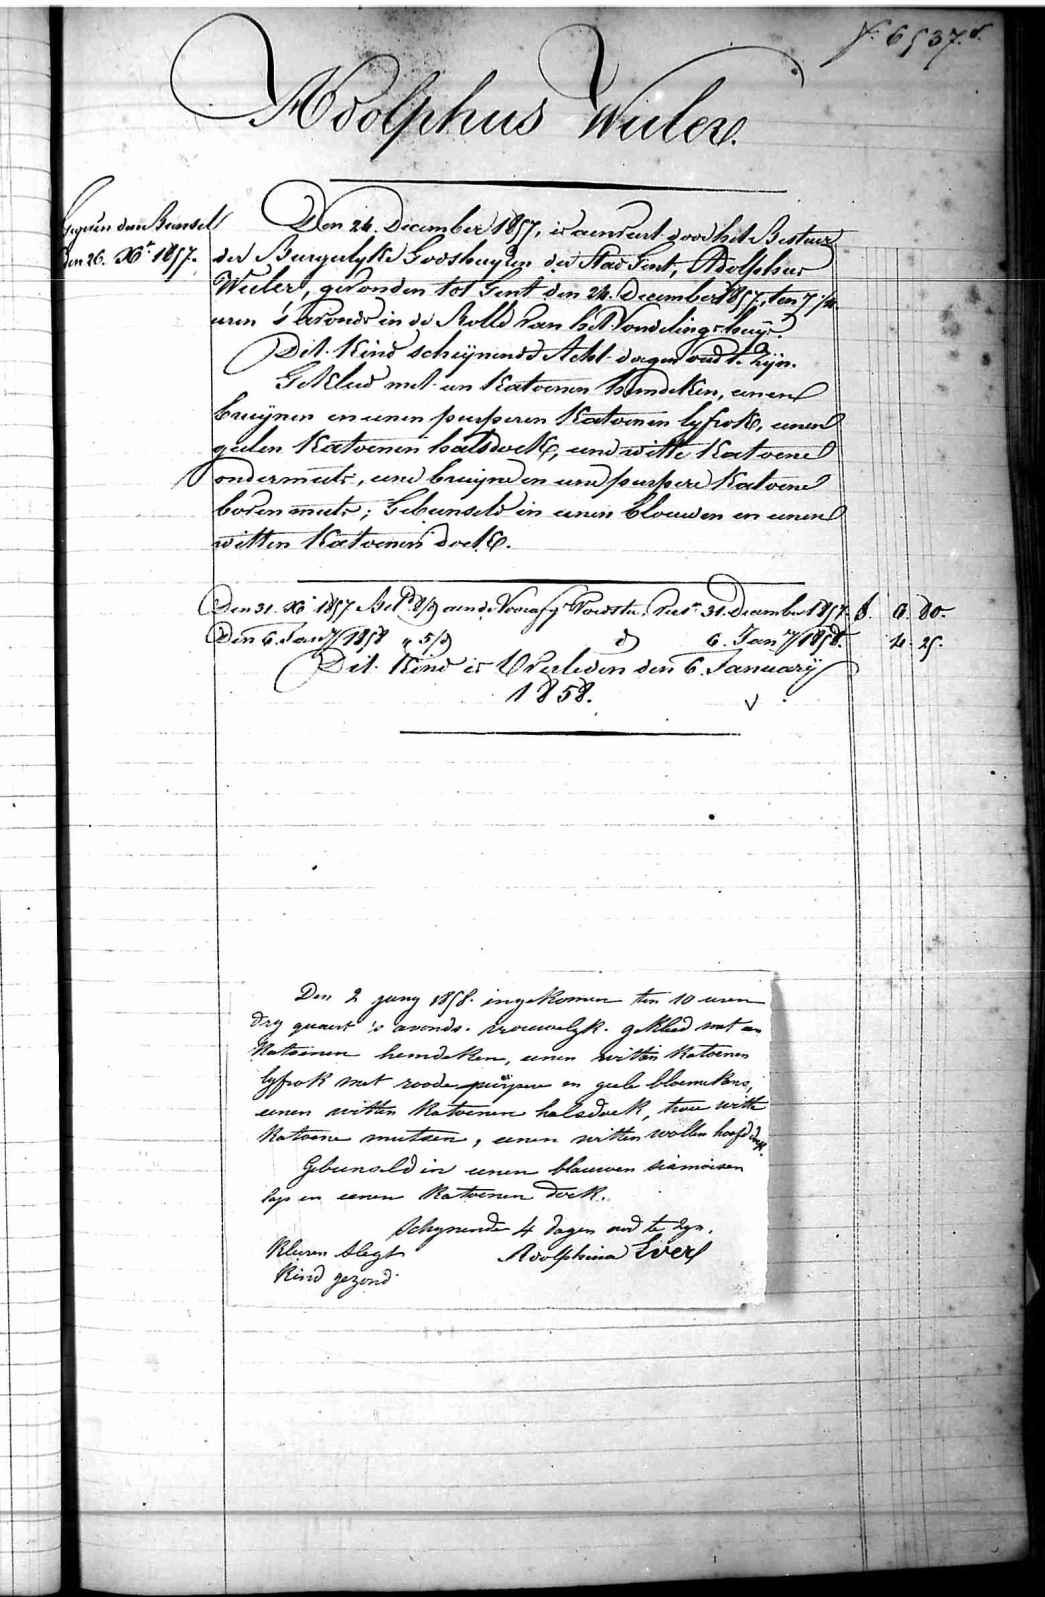 6537.
Adolphus Wuler.
den 26. Xbr 1857.
Den 24 December 1857, is aenveert door het Bestuer
der Burgerlyke Godshuyzen der Stad Gent, Adolphus
Wuler, gevonden tot Gent den 24 December 1857, ten 7 1/4
uren 's avonds in de Rolle van het Vondelingshuys.
Dit Kind scheynende Acht dagen oud te zyn.
Gekleed met een Katoenen hemdeken, eenen
bruynen en eenen purperen Katoenen lyfrok, eenen
geelen Katoenen halsdoek, eene witte Katoene
ondermuts, eene bruyne en eene purpere Katoene
bovenmuts; Gebunseld in eenen blauwen en eenen
witten Katoenen doek.
Den 31. Xbr 1857 aen de Voedster 31. December 1857. 80.
Den 6. Jany 1858 " 5/ d 6. Jany 1858. 4. 25.
Dit Kind is Overleden den 6. January
1858.
Den 2 juny 1858. ingekomen ten 10 uren
dry quaert 's avonds. vrouwelyk. gekleed met een
Katoenen hemdeken, eenen witten Katoenen
lyfrok met roode purpere en geele bloemkens,
eenen witten Katoenen halsdoek, twee witte
Katoene mutsen, eenen witten wollen hoofddoek.
Gebunseld in eenen blauwen siamoisen
lap en eenen Katoenen doek.
Schynende 4 dagen oud te zyn.
Kleeren slegt Adolphina Everl
Kind gezond